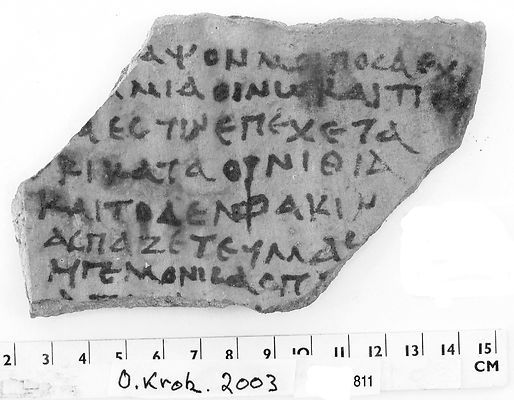 ΑΨΟΝΜΟΙΠΟϹΑΕΧΙ
ΜΙΑΟΙΝΩΚΑΙΤΙ
ΑΕϹΤΙΝΕΠΕΧΕΤΑ
ΚΙΚΑΤΑΟΥΝΙΘΙΑ
ΚΑΙΤΟΔΕΝΡΑΚΙΝ
ΑϹΠΑΖΕΤΕΥΜΑϹ
ΗΓΕΜΟΝΙϹΑϹΠ
2 3 4 5 6 7 8 9 10 11 12 13 14 15
CM
O. Krok. 2003 811